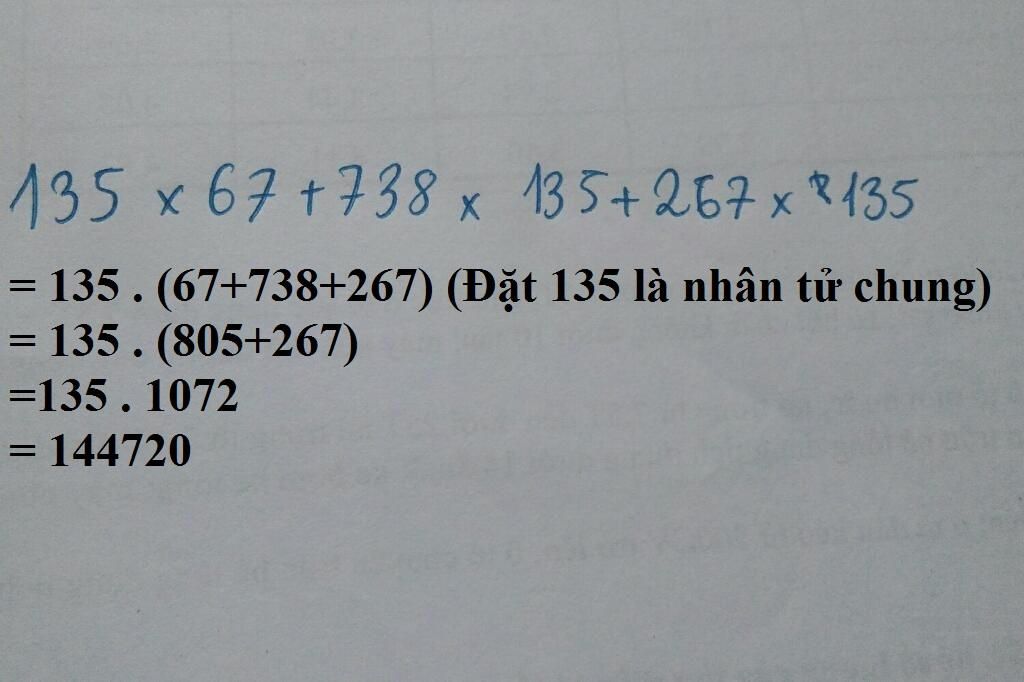 135 x 67 + 738 x 135 + 267 x 135
= 135 . (67+738+267) (Đặt 135 là nhân tử chung)
= 135 . (805+267)
=135 . 1072
= 144720